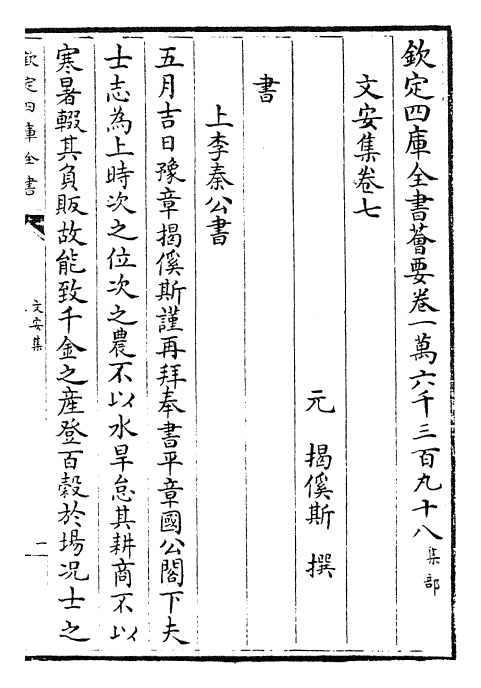 欽定四庫全書薈要卷一萬六千三百九十八集部
文安集卷七
元 揭傒斯 撰
書
上李秦公書
五月吉日豫章揭傒斯謹再拜奉書平章國公閣下夫
士志為上時次之位次之農不以水旱怠其耕商不以
寒暑輟其負販故能致千金之産登百榖於場况士之
欽定四庫全書
文安集
一